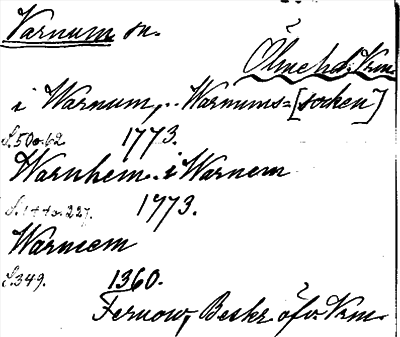 Varnum sn.
Ölme hd. Vrm.
i Warnum, .. Warnums=[socken]
S. 50 o. 62. 1773.
Warnhem .. i Warnem
S. 144 o. 227. 1773.
Warnem
S. 349. 1360.
Fernow, Beskr. öfv. Vrm.